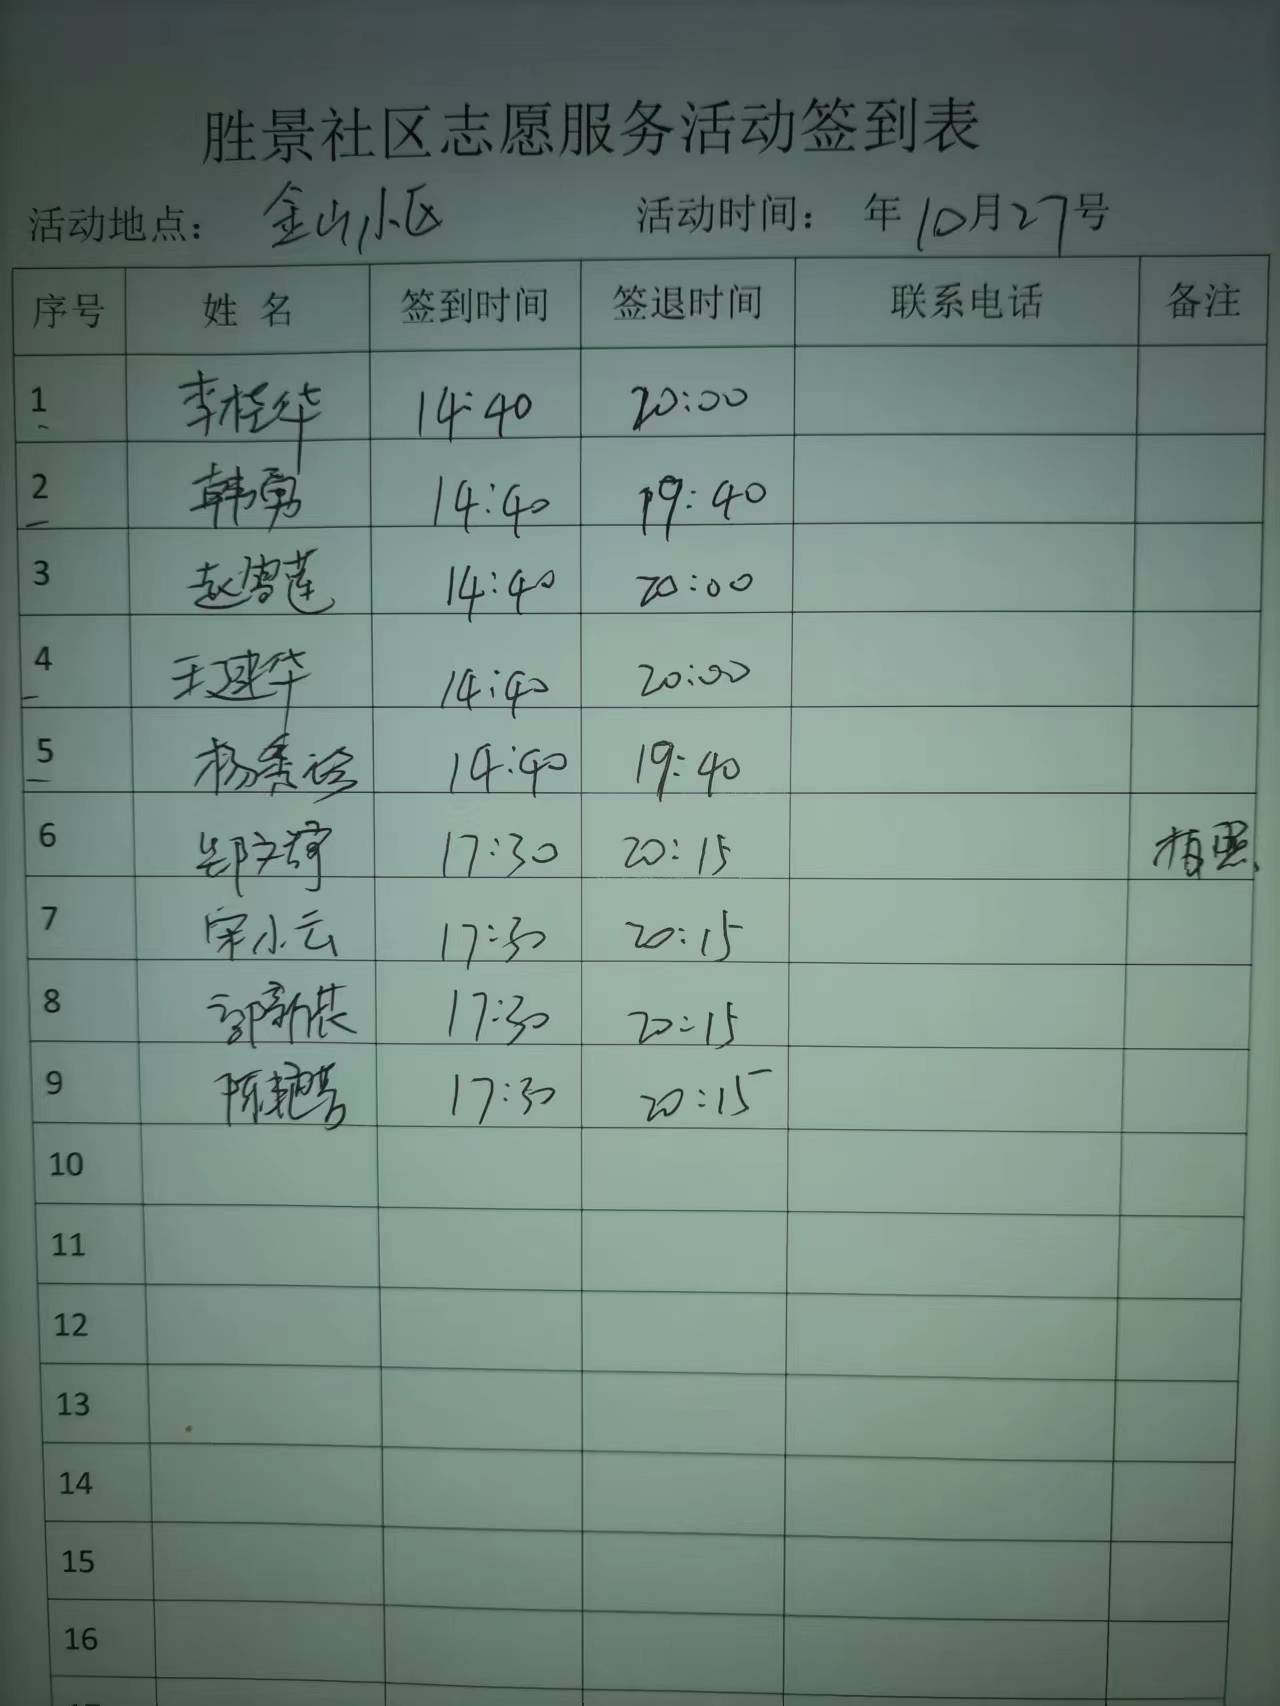 胜景社区志愿服务活动签到表
活动地点：金山小区 活动时间： 年10月27号
序号 姓 名 签到时间 签退时间 联系电话 备注
1 李桂华 14:40 20:00
2 韩勇 14:40 19:40
3 赵雪莲 14:40 20:00
4 王建华 14:40 20:00
5 杨秀 14:40 19:40
6 郑文 17:30 20:15
7 宋小云 17:30 20:15
8 郭新 17:30 20:15
9 陈艳 17:30 20:15
10
11
12
13
14
15
16